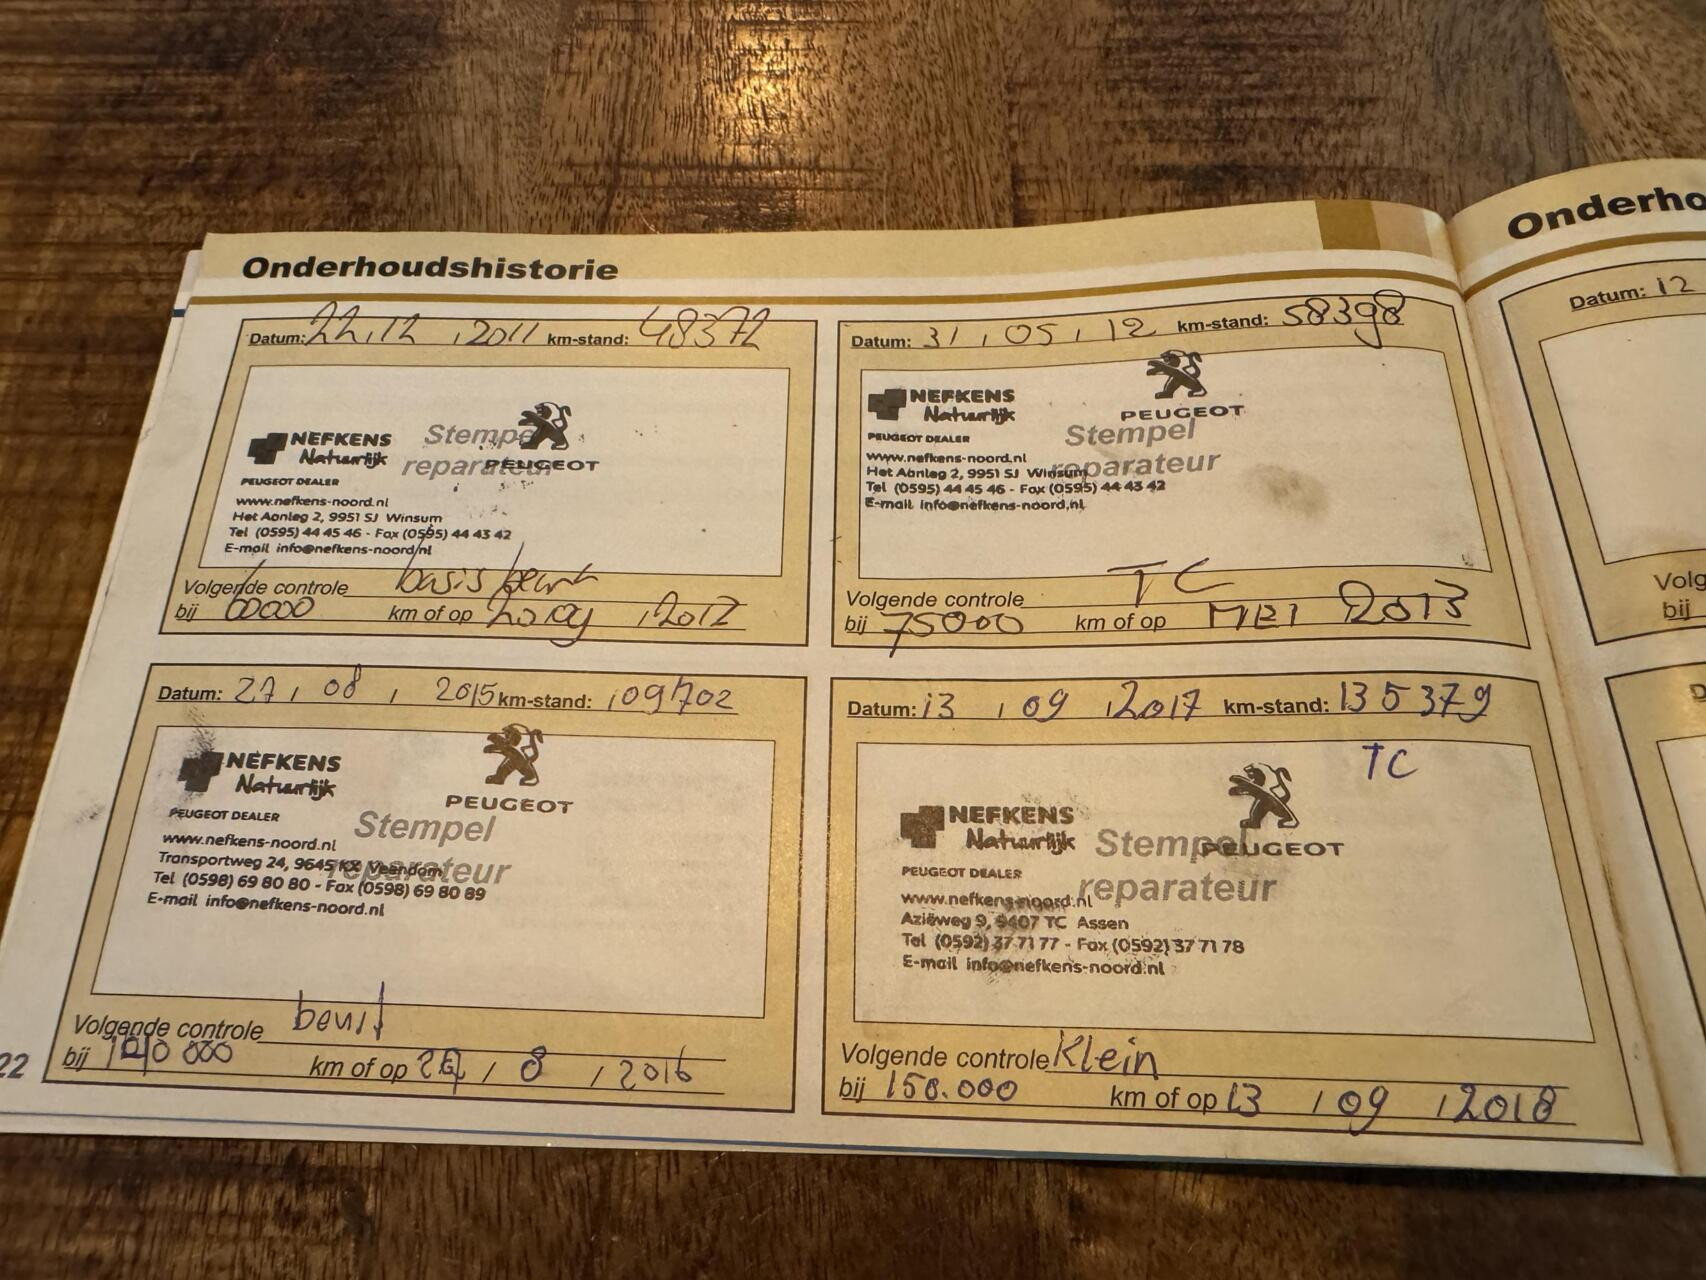 Onderhoudshistorie
Datum: 22, 12, 2011 km-stand: 48372
NEFKENS
Natuurlijk
PEUGEOT DEALER
Stempel
reparateur
PEUGEOT
www.nefkens-noord.nl
Het Aanleg 2, 9951 SJ Winsum
Tel (0595) 44 45 46 - Fax (0595) 44 43 42
E-mail info@nefkens-noord.nl
Volgende controle basis beurt
bij 60000 km of op 2012
Datum: 31, 05, 12 km-stand: 58398
NEFKENS
Natuurlijk
PEUGEOT DEALER
PEUGEOT
Stempel
reparateur
www.nefkens-noord.nl
Het Aanleg 2, 9951 SJ Winsum
Tel (0595) 44 45 46 - Fax (0595) 44 43 42
E-mail info@nefkens-noord.nl
Volgende controle TC
bij 75000 km of op MEI 2013
Datum: 27, 08, 2015 km-stand: 109702
NEFKENS
Natuurlijk
PEUGEOT DEALER
PEUGEOT
Stempel
reparateur
www.nefkens-noord.nl
Transportweg 24, 9645 KX Veendam
Tel (0598) 69 80 80 - Fax (0598) 69 80 89
E-mail info@nefkens-noord.nl
Volgende controle beurt
bij km of op 8, 2016
22
Datum: 13, 09, 2017 km-stand: 135379
TC
NEFKENS
Natuurlijk
PEUGEOT DEALER
Stempel
reparateur
PEUGEOT
www.nefkens-noord.nl
Aziëweg 9, 9407 TC Assen
Tel (0592) 37 71 77 - Fax (0592) 37 71 78
E-mail info@nefkens-noord.nl
Volgende controle Klein
bij 150.000 km of op 13, 09, 2018
Onderho
Datum: 12
Volg
bij
D